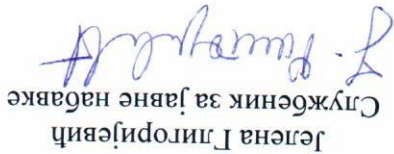 Јелена Глигоријевић
Службеник за јавне набавке